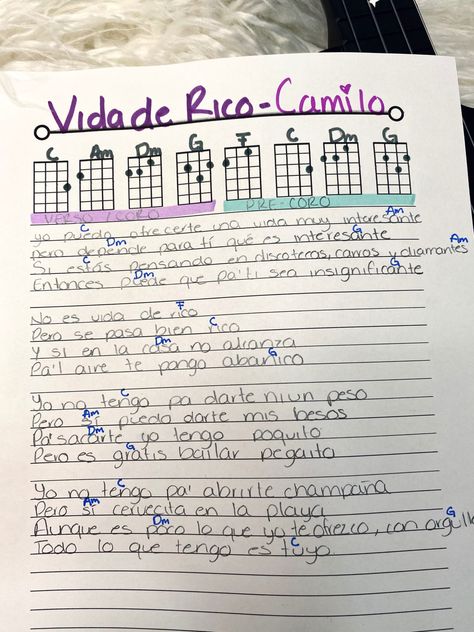 Vida de Rico - Camilo
C Am Dm G F C Dm G
VERSO/CORO PRE-CORO
C Am
yo puedo ofrecerte una vida muy interesante
Dm G
pero depende para tí qué es interesante
C Am
Si estás pensando en discotecas, carros y diamantes
Dm G
Entonces puede que pa'ti sea insignificante
F
No es vida de rico
C
Pero se pasa bien rico
Dm
Y si en la casa no alcanza
G
Pa'l aire te pongo abanico
C
Yo no tengo pa darte ni un peso
Am
Pero sí puedo darte mis besos
Dm
Pa'sacarte yo tengo poquito
G
Pero es gratis bailar pegaito
C
Yo no tengo pa' abrirte champaña
Am
Pero sí cervecita en la playa
Dm G
Aunque es poco lo que yo te ofrezco, con orgull
C
Todo lo que tengo es tuyo